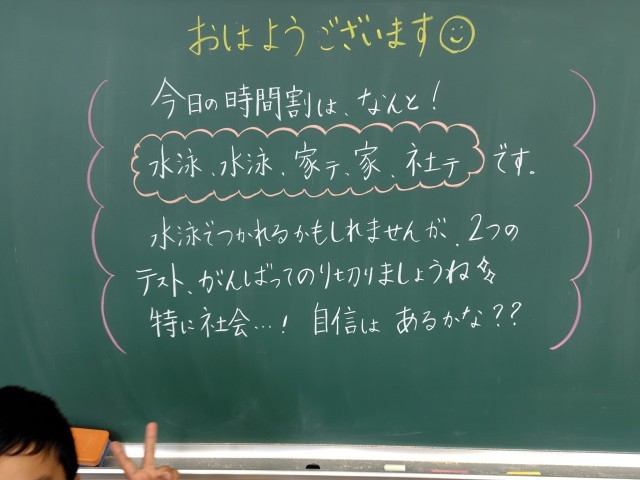 おはようございます☺
今日の時間割は、なんと!
水泳、水泳、家テ、家、社テ です。
水泳でつかれるかもしれませんが、2つの
テスト、がんばってのり切りましょうね✨
特に社会…! 自信は あるかな??